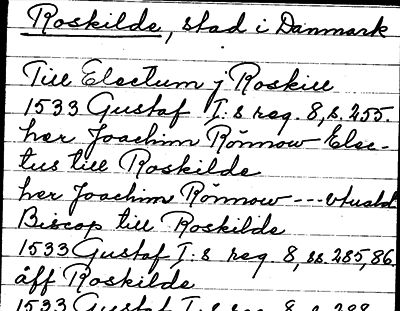 Roskilde, stad i Danmark
Till Electum j Roskill
1533 Gustaf I:s reg. 8, s. 255.
her Joachim Rönnow Elec-
tus till Roskilde
her Joachim Rönnow --- vtuald
Biscop till Roskilde
1533 Gustaf I:s reg 8, ss. 285, 86.
åff Roskilde
1533 Gustaf I:s reg. 8, s. 288